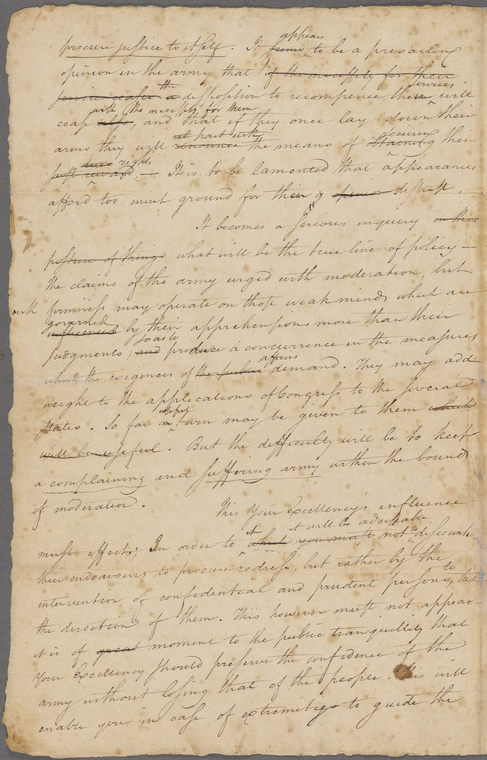 procure justice to itself. It seems appears to be a prevailing
opinion in the army that if the necessity for their
service ceases the a disposition to recompence their services will
cease with the necessity for them, and that if they once lay down their
arms they will renounce part with the means of obtaining securing their
just reward right. It is to be lamented that appearances
afford too much ground for their distrust.
It becomes a serious inquiry in this
posture of things what will be the true line of policy—
the claims of the army urged with moderation but
with firmness may operate on those weak minds which are
influenced governed by their apprehensions more than their
judgments, and so as to produce a concurrence in the measures
which the exigencies of the public affairs demand. They may add
weight to the applications of Congress to the several
states. So far an useful turn may be given to them which
will be useful. But the difficulty will be to keep
a complaining and suffering army within the bounds
of moderation.
This Your Excellency's influence
must effect; In order to it it will be adviseable which you must not to discountenance
their endeavours to procure redress, but rather by the
intervention of confidential and prudent persons, to take
the direction of them. This however must not appear—
it is of great moment to the public tranquillity that
Your Excellency should preserve the confidence of the
army without losing that of the people. This will
enable you in case of extremity to guide the